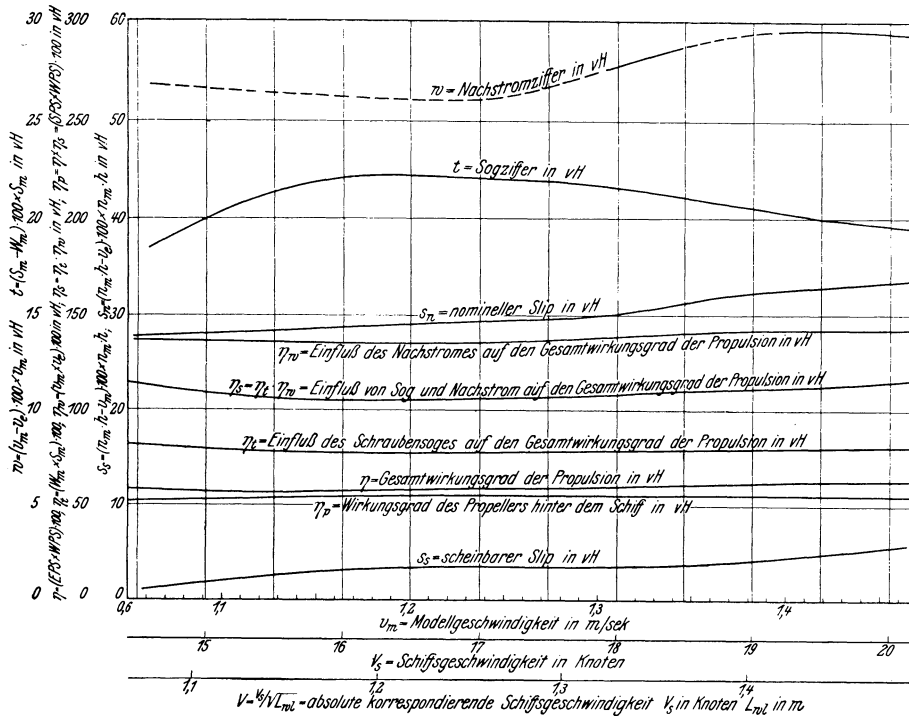 30 300 60
25 250 50
20 200 40
15 150 30
10 100 20
5 50 10
0 0 0
w = Nachstromziffer in vH
t = Sogziffer in vH
s_n = nomineller Slip in vH
η_w = Einfluß des Nachstromes auf den Gesamtwirkungsgrad der Propulsion in vH
η_s = η_t · η_w = Einfluß von Sog und Nachstrom auf den Gesamtwirkungsgrad der Propulsion in vH
η_t = Einfluß des Schraubensoges auf den Gesamtwirkungsgrad der Propulsion in vH
η = Gesamtwirkungsgrad der Propulsion in vH
η_p = Wirkungsgrad des Propellers hinter dem Schiff in vH
s_s = scheinbarer Slip in vH
0,6 1,1 1,2 1,3 1,4
v_m = Modellgeschwindigkeit in m/sek
15 16 17 18 19 20
V_s = Schiffsgeschwindigkeit in Knoten
1,1 1,2 1,3 1,4
V = V_s/√L_wl = absolute korrespondierende Schiffsgeschwindigkeit V_s in Knoten L_wl in m